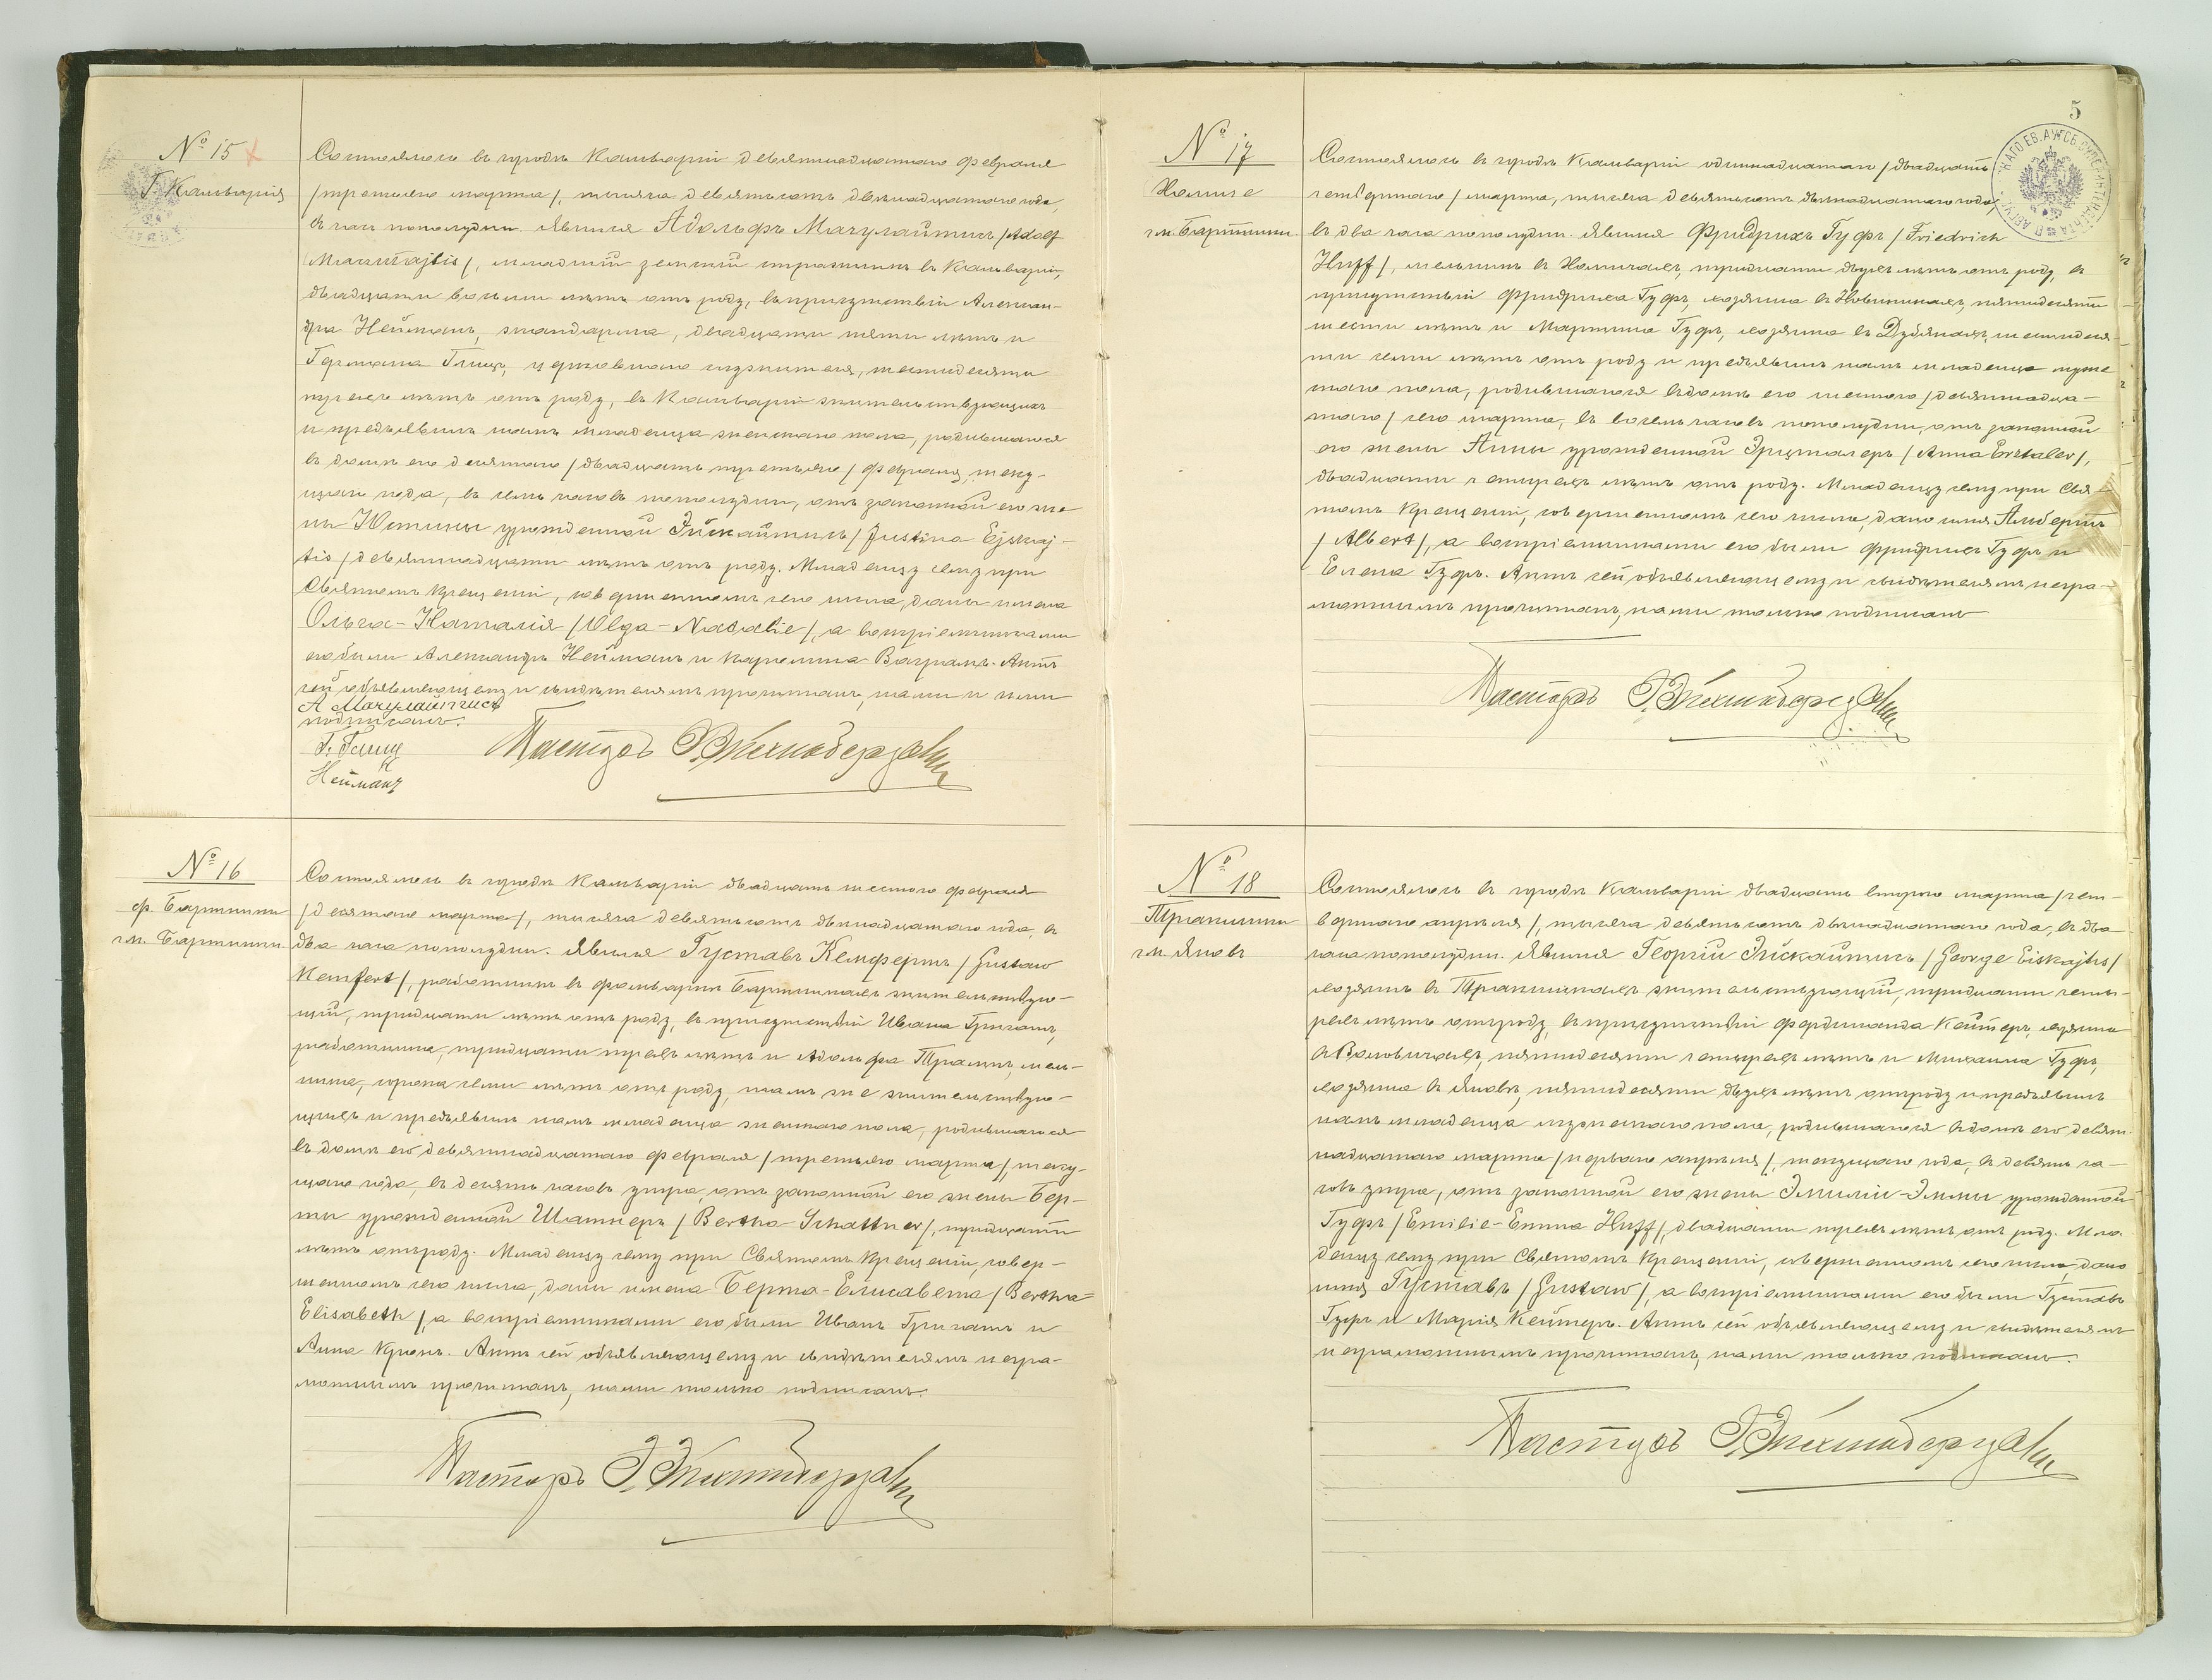 № 15
Г. Кальварія
Состоялось въ городѣ Кальваріи девятнадцатаго Февраля
/третьяго марта/, тысяча девятьсотъ двѣнадцатаго года,
въ часъ пополудни. Явился Адольфъ Мачулайтисъ /Adolf
Maczulajtis/, младшій земскій стражникъ въ Кальваріи,
двадцати восьми лѣтъ отъ роду, въ присутствіи Алексан-
дра Нейманъ, жандарма, двадцати пяти лѣтъ и
Германа Глицъ, церковнаго служителя, шестидесяти
трехъ лѣтъ отъ роду, въ Кальваріи жительствующихъ
и предъявилъ намъ младенца женскаго пола, родившагося
въ домѣ его десятаго /двадцать третьяго/ Февраля, теку-
щаго года, въ семь часовъ пополудни, отъ законной его же-
ны Юстины урожденной Эйскайтисъ /Justina Ejskaj-
tis/ девятнадцати лѣтъ отъ роду. Младенцу сему при
Святомъ Крещеніи, совершенномъ сего числа, даны имена
Ольга-Наталія /Olga-Natalie/, а воспріемниками
его были Александръ Нейманъ и Каролина Ваграмъ. Актъ
сей объявляющему и свидѣтелямъ прочитанъ, нами и ими
подписанъ.
А Мачулайтисъ
Г. Глицъ
Нейманъ
Пасторъ
№ 16
ф. Бартники
гм. Бартники
Состоялось въ городѣ Кальваріи двадцать шестого февраля
/десятаго марта/, тысяча девятьсотъ двѣнадцатаго года, въ
два часа пополудни. Явился Густавъ Кемфертъ /Gustaw
Kemfert/, работникъ въ фольваркѣ Бартникахъ жительствую-
щій, тридцати лѣтъ отъ роду, въ присутствіи Ивана Григатъ,
работника, тридцати трехъ лѣтъ и Адольфа мель-
ника, сорока семи лѣтъ отъ роду, тамъ же жительствую-
щихъ и предъявилъ намъ младенца женскаго пола, родившагося
въ домѣ его девятнадцатаго февраля /третьяго марта/, теку-
щаго года, въ десять часовъ утра, отъ законной его жены Бер-
ты урожденной Шатнеръ /Bertha Schattner/, тридцати
лѣтъ отъ роду. Младенцу сему при Святомъ Крещеніи, совер-
шенномъ сего числа, даны имена Берта-Елисавета /Bertha-
Elisabeth/, а воспріемниками его были Иванъ Григатъ и
Анна Кронъ. Актъ сей объявляющему и свидѣтелямъ негра-
мотнымъ прочитанъ, нами только подписанъ.
Пасторъ
5
№ 17
гм. Бартники
Состоялось въ городѣ Кальваріи одиннадцатаго /двадцать
четвертаго/ марта, тысяча девятьсотъ двѣнадцатаго года,
въ два часа пополудни. Явился Фридрихъ Гуфъ /Friedrich
Huff/, мельникъ въ тридцати двухъ лѣтъ отъ роду, въ
присутствіи Фридриха Гуфъ, хозяина въ пятидесяти
шести лѣтъ и Мартина Гуфъ, хозяина въ шестидеся-
ти семи лѣтъ отъ роду и предъявилъ намъ младенца муже
скаго пола, родившагося въ домѣ его шестого /девятнадца-
таго/ сего марта, въ восемь часовъ пополудни, отъ законной
его жены Анны урожденной Эрцталеръ /Anna Erztaler/,
двадцати четырехъ лѣтъ отъ роду. Младенцу сему при Свя-
томъ Крещеніи, совершенномъ сего числа, дано имя Альбертъ
/Albert/, а воспріемниками его были Фридрихъ Гуфъ и
Елена Гуфъ. Актъ сей объявляющему и свидѣтелямъ негра-
мотнымъ прочитанъ, нами только подписанъ
Пасторъ
№ 18
гм. Яновъ
Состоялось въ городѣ Кальваріи двадцать второго марта /чет-
вертаго апрѣля/, тысяча девятьсотъ двѣнадцатаго года, въ два
часа пополудни. Явился Георгій Эйскайтисъ /George Eiskajtis/
хозяинъ въ жительствующій, тридцати четы-
рехъ лѣтъ отъ роду, въ присутствіи Фердинанда Кеймеръ, хозяина
въ пятидесяти четырехъ лѣтъ и Михаила Гуфъ,
хозяина въ Яновѣ, пятидесяти двухъ лѣтъ отъ роду и предъявилъ
намъ младенца мужескаго пола, родившагося въ домѣ его девят-
надцатаго марта /перваго апрѣля/, текущаго года, въ девять ча-
совъ утра, отъ законной его жены Эмиліи-Эммы урожденной
Гуфъ /Emilie-Emma Huff/, двадцати трехъ лѣтъ отъ роду. Мла-
денцу сему при Святомъ Крещеніи, совершенномъ сего числа, дано
имя Густавъ /Gustaw/, а воспріемниками его были Густавъ
Гуфъ и Марія Кеймеръ. Актъ сей объявляющему и свидѣтелямъ
неграмотнымъ прочитанъ, нами только подписанъ.
Пасторъ